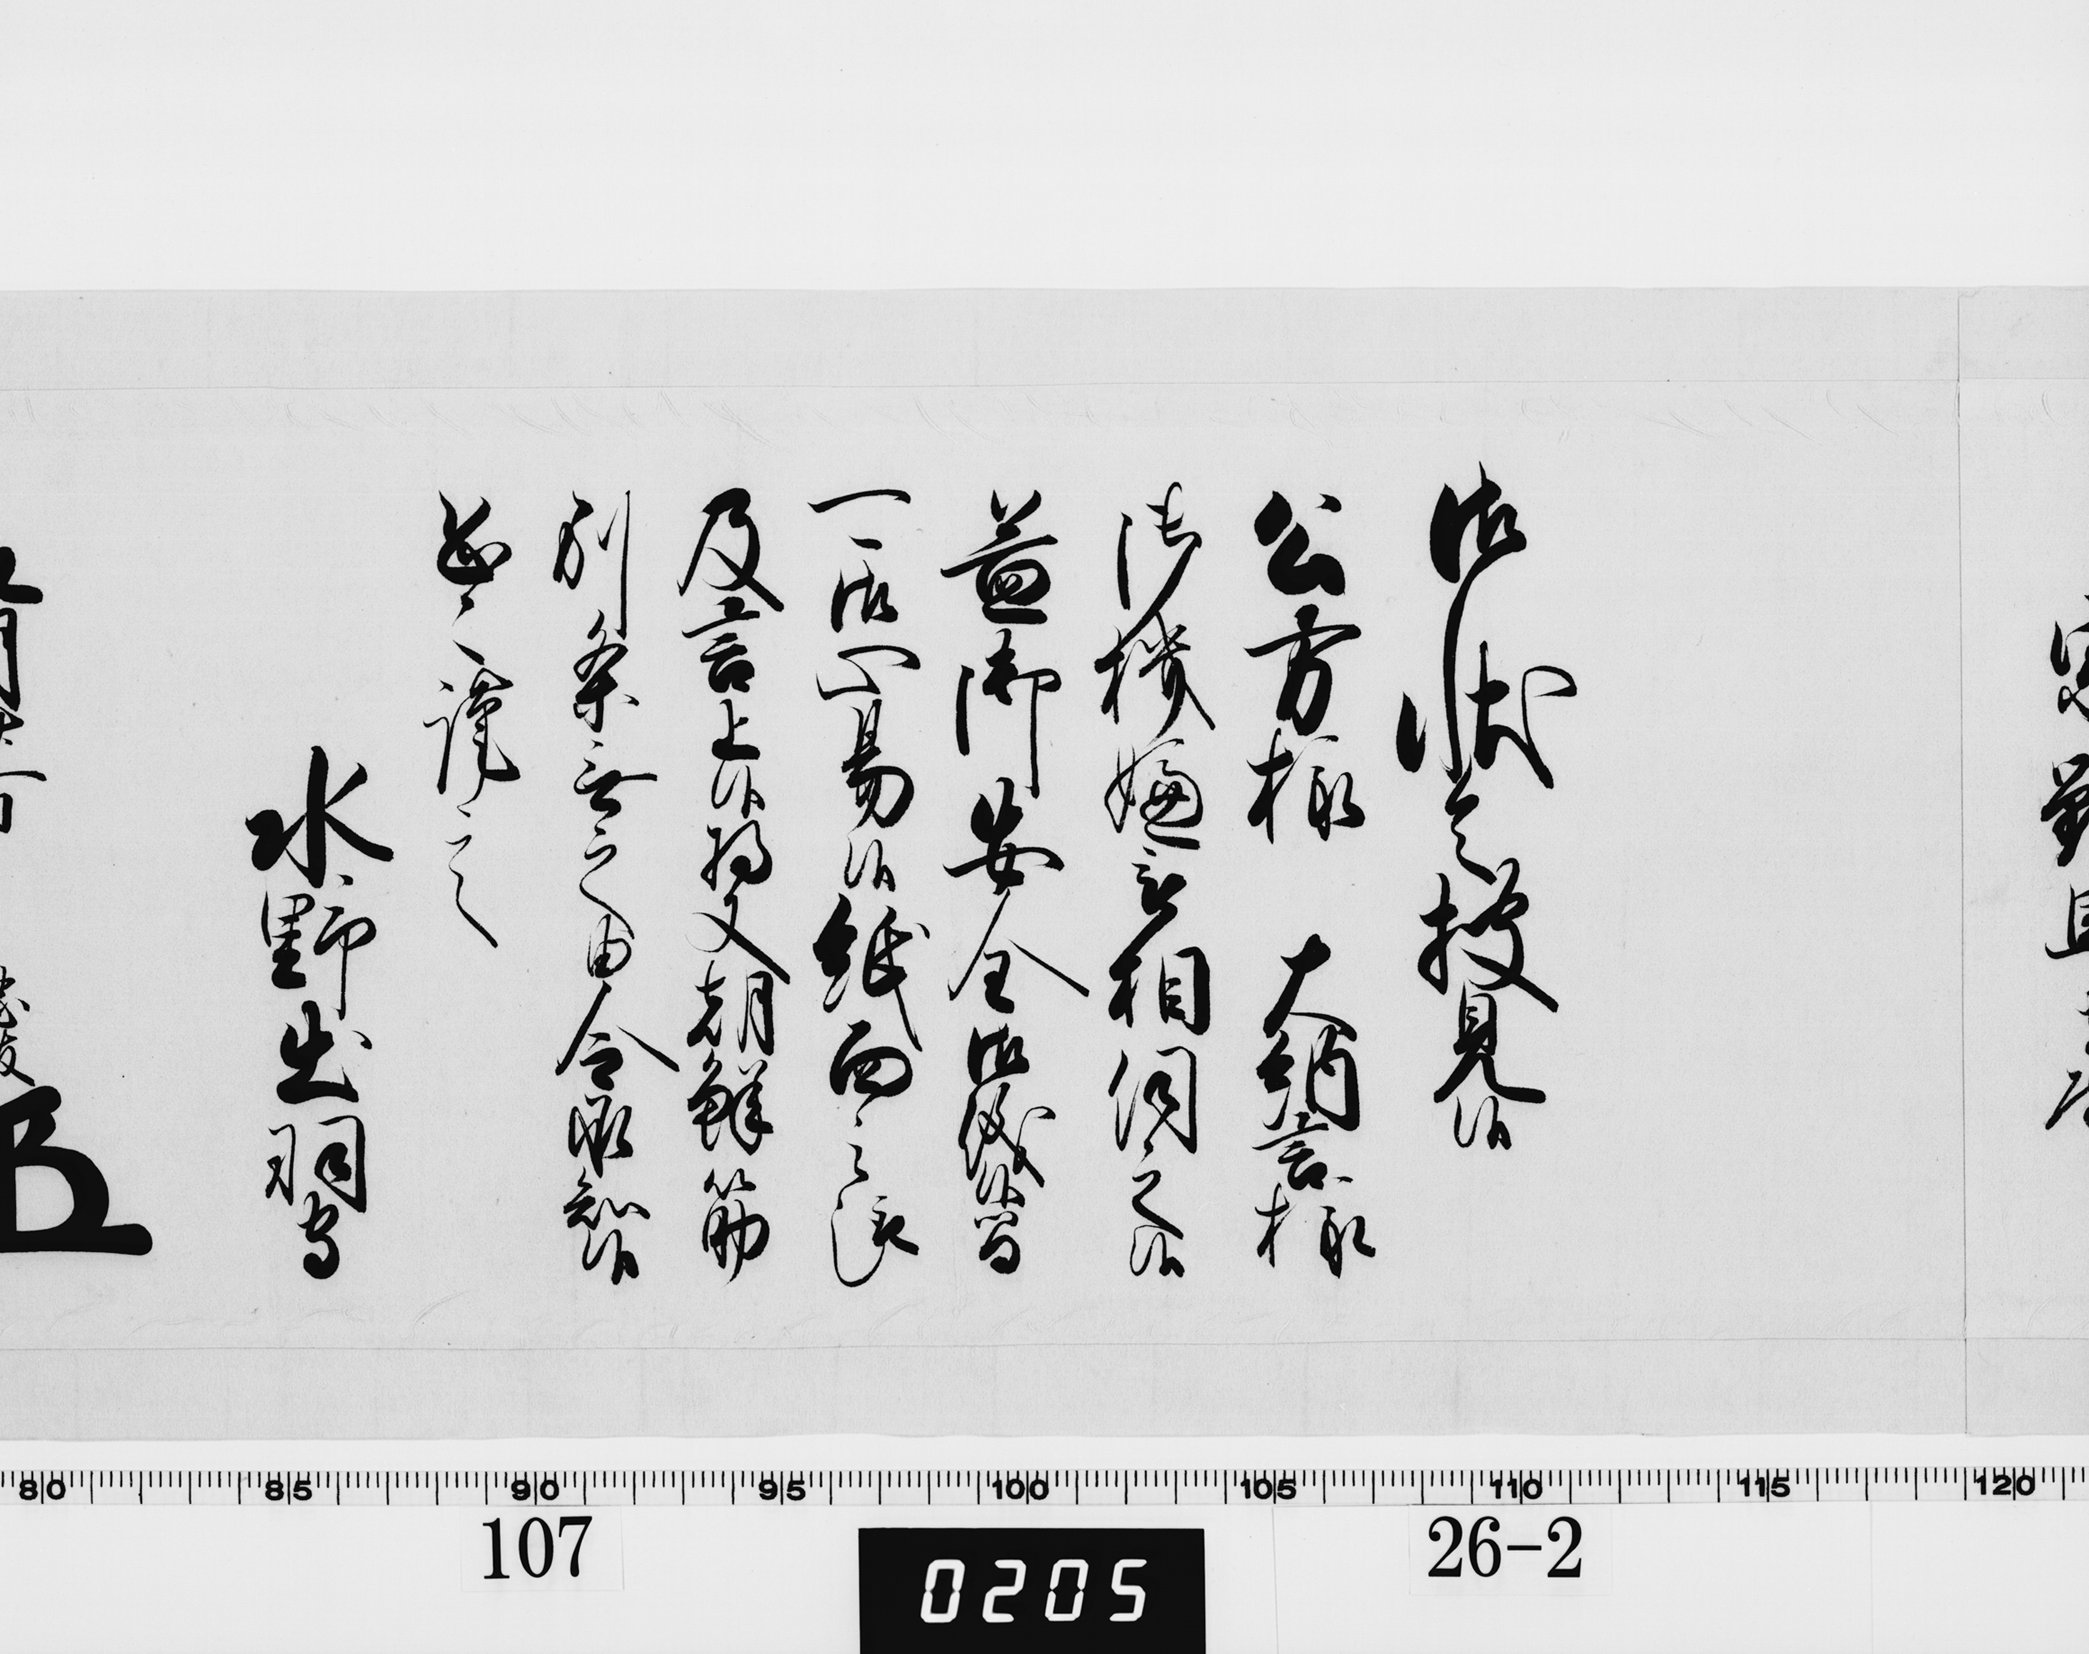 御状令披見候
公方様 大納言様
御機嫌被相伺之候
益御安全御儀候間
可御心易候紙面之趣
及言上候将又朝鮮筋
別条無之由令承知候
恐々謹言
水野出羽守
80 85 90 95 100 105 110 115 120
107
26-2
0205